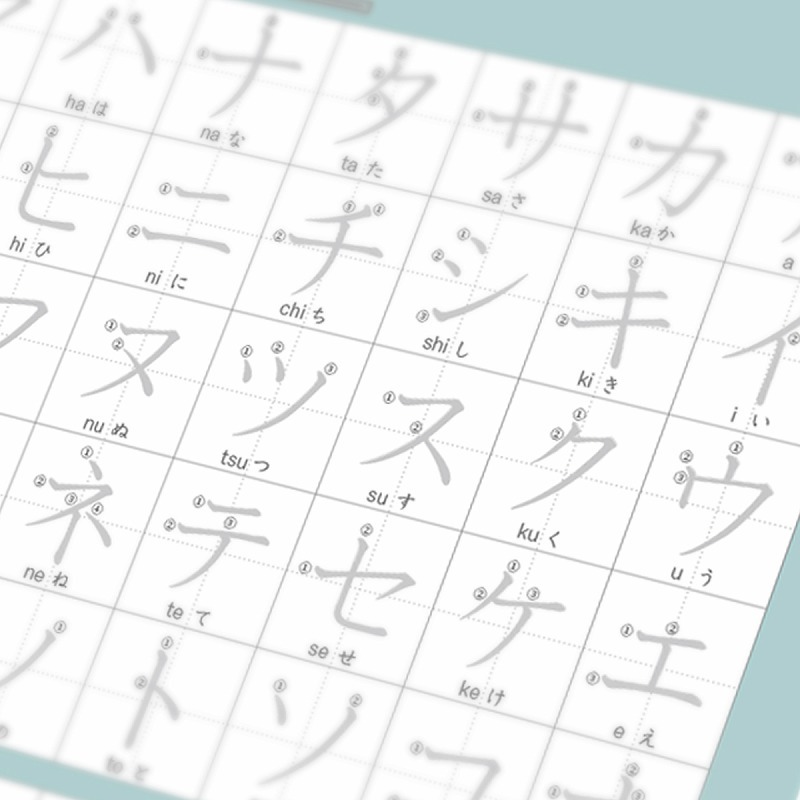 ハ ナ タ サ カ
ha は na な ta た sa さ ka か a
ヒ ニ チ シ キ イ
hi ひ ni に chi ち shi し ki き i い
フ ヌ ツ ス ク ウ
nu ぬ tsu つ su す ku く u う
ネ テ セ ケ エ
ne ね te て se せ ke け e え
ノ ト ソ コ
to と